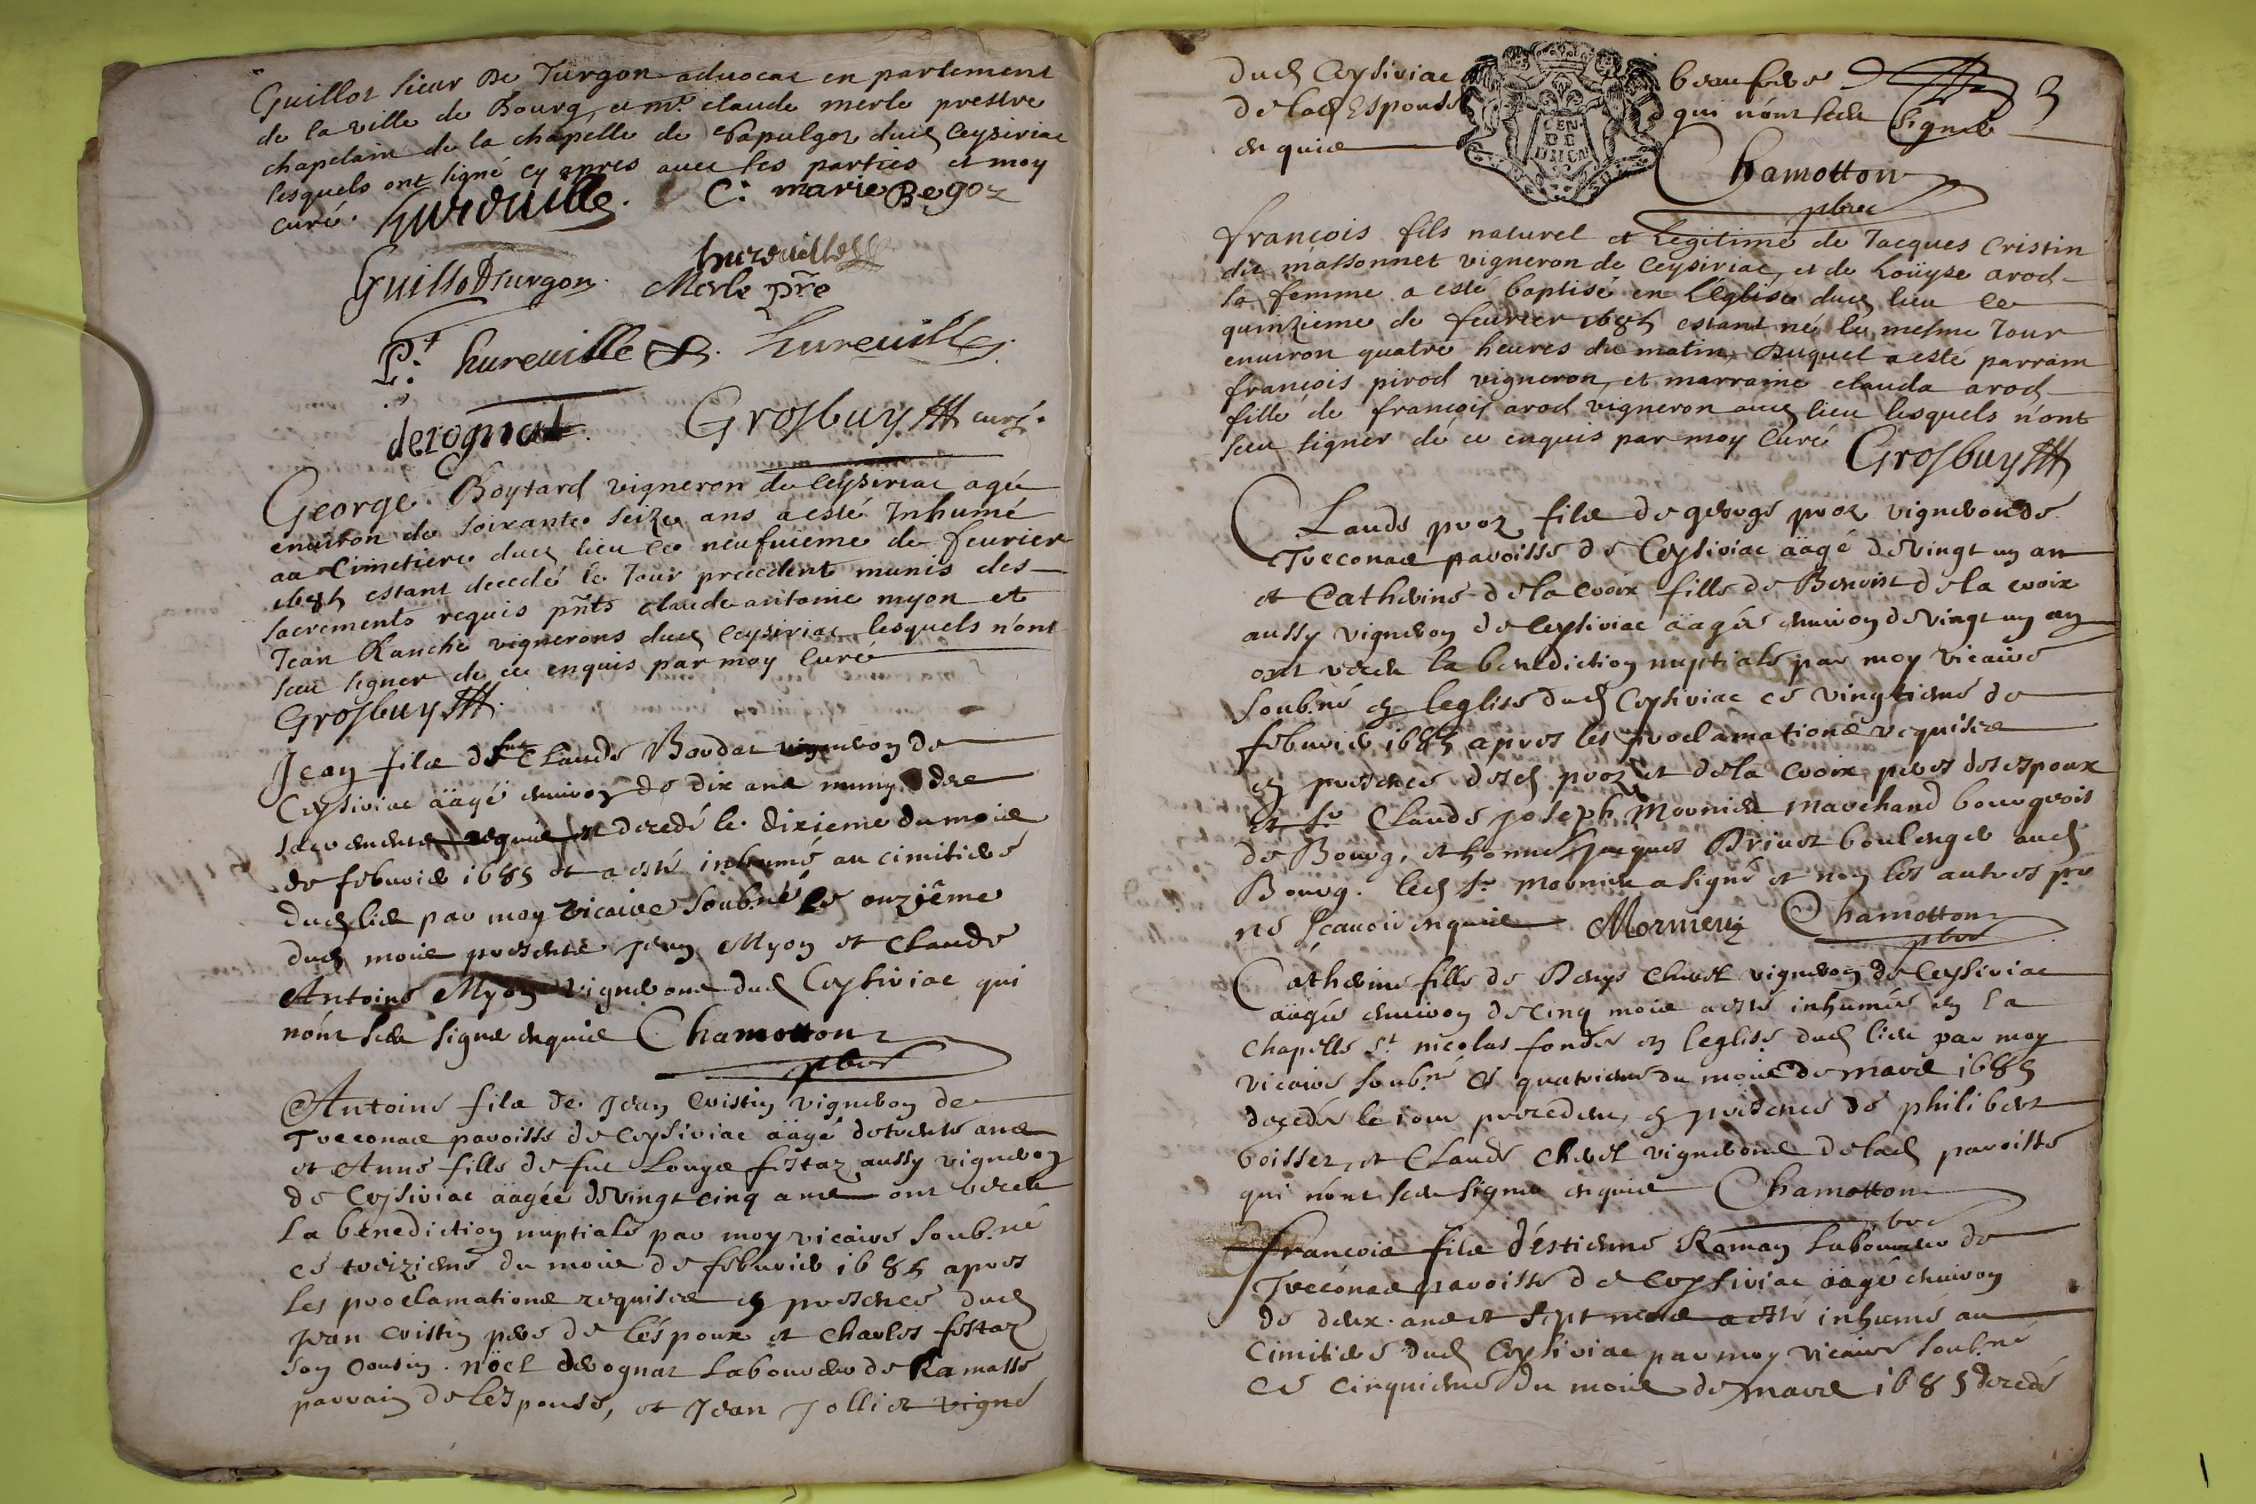 Guillot sieur De Turgon advocat en parlement
de la ville de Bourg, et mre claude merle prestre
chapelain de la chapelle de dud ceysiriac
lesquels ont signé cy apres avec les parties et moy
curé. hureville. C. marie Begoz
hureville
Guillot Dturgon. Merle pre
P. hureville hureville
derognat. Grosbuy curé.
George Boytard vigneron du ceysiriac agé
environ de soixante seize ans a esté Inhumé
au Cimetiere dud lieu ce neufvieme de fevrier
1685 estant decedé le Jour precedent munis des
sacrements requis pnts claude antoine myon et
Jean Ranche vignerons dud ceysiriac lesquels n'ont
sceu signer de ce enquis par moy Curé
Grosbuy
Jean fils de feu Claude Bordat vigneron de
Ceysiriac äagé environ de dix ans muny des
sacrements requis est decedé le dixieme du mois
de febvrier 1685 et a esté inhumé au cimitiere
dud lieu par moy vicaire soub.né le onziême
dud mois presents Jean Myon et Claude
Antoine Myon vignerons dud Ceysiriac qui
n'ont sceu signer enquis Chamotton
pbre
Antoine fils de Jean Cristin vigneron de
Treconas paroisse de Ceysiriac äagé de trente ans
et Anne fille de feu Louys festaz aussy vigneron
de Ceysiriac äagée de vingt cinq ans ont receu
la benediction nuptiale par moy vicaire soub.né
ce treizieme du mois de febvrier 1685 apres
les proclamations requises en presence dud
Jean Cristin pere de l'éspoux et Charles festaz
son Cousin. nöel derognat laboureur de Ramasse
parrain de l'espouse, et Jean Jollier vigne
dud Ceysiriac beau frere
de lad Espouse qui n'ont sceu signer
enquis
GEN DE DIJON
3
Chamotton
pbre
francois fils naturel et legitime de Jacques Cristin
dit massonnet vigneron de ceysiriac, et de Loüyse arod
sa femme a esté baptisé en L'Eglise dud lieu ce
quinzieme de fevrier 1685 estant né le mesme Jour
environ quatre heures du matin, Duquel a esté parrain
francois pirod vigneron, et marraine clauda arod
fille de francois arod vigneron aud lieu lesquels n'ont
sceu signer de ce enquis par moy Curé Grosbuy
Claude proz fils de george proz vigneron de
Treconas paroisse de Ceysiriac äagé de vingt un an
et Catherine de la croix fille de Benoist de la croix
aussy vigneron de Ceysiriac äagée environ de vingt un an
ont receu la benediction nuptiale par moy vicaire
soub.né en leglise dud Ceysiriac ce vingtieme de
febvrier 1685 apres les proclamations requises
en presence desd proz et de la croix peres des espoux
et sr Claude Joseph Mornieu marchand bourgeois
de Bourg, et honne Jacques Brivet boulenger aud
Bourg. led sr mornieu a signé et non les autres pr
ne scavoir enquis Mornieu Chamotton
pbre
Catherine fille de Denys Chevel vigneron de Ceysiriac
äagée environ de cinq mois a esté inhumée en la
Chapelle St nicolas fondée en leglise dud lieu par moy
vicaire soub.né ce quatrieme du mois de mars 1685
decedée le iour precedent, en presence de philibert
boisser, et Claude Chevel vignerons de lad paroisse
qui n'ont sceu signer enquis Chamotton
pbre
francois fils d'éstienne Roman laboureur de
Treconas paroisse de Ceysiriac äagé environ
de deux ans et sept mois a esté inhumé au
Cimitiere dud Ceysiriac par moy vicaire soub.né
ce cinquieme du mois de mars 1685 decedé